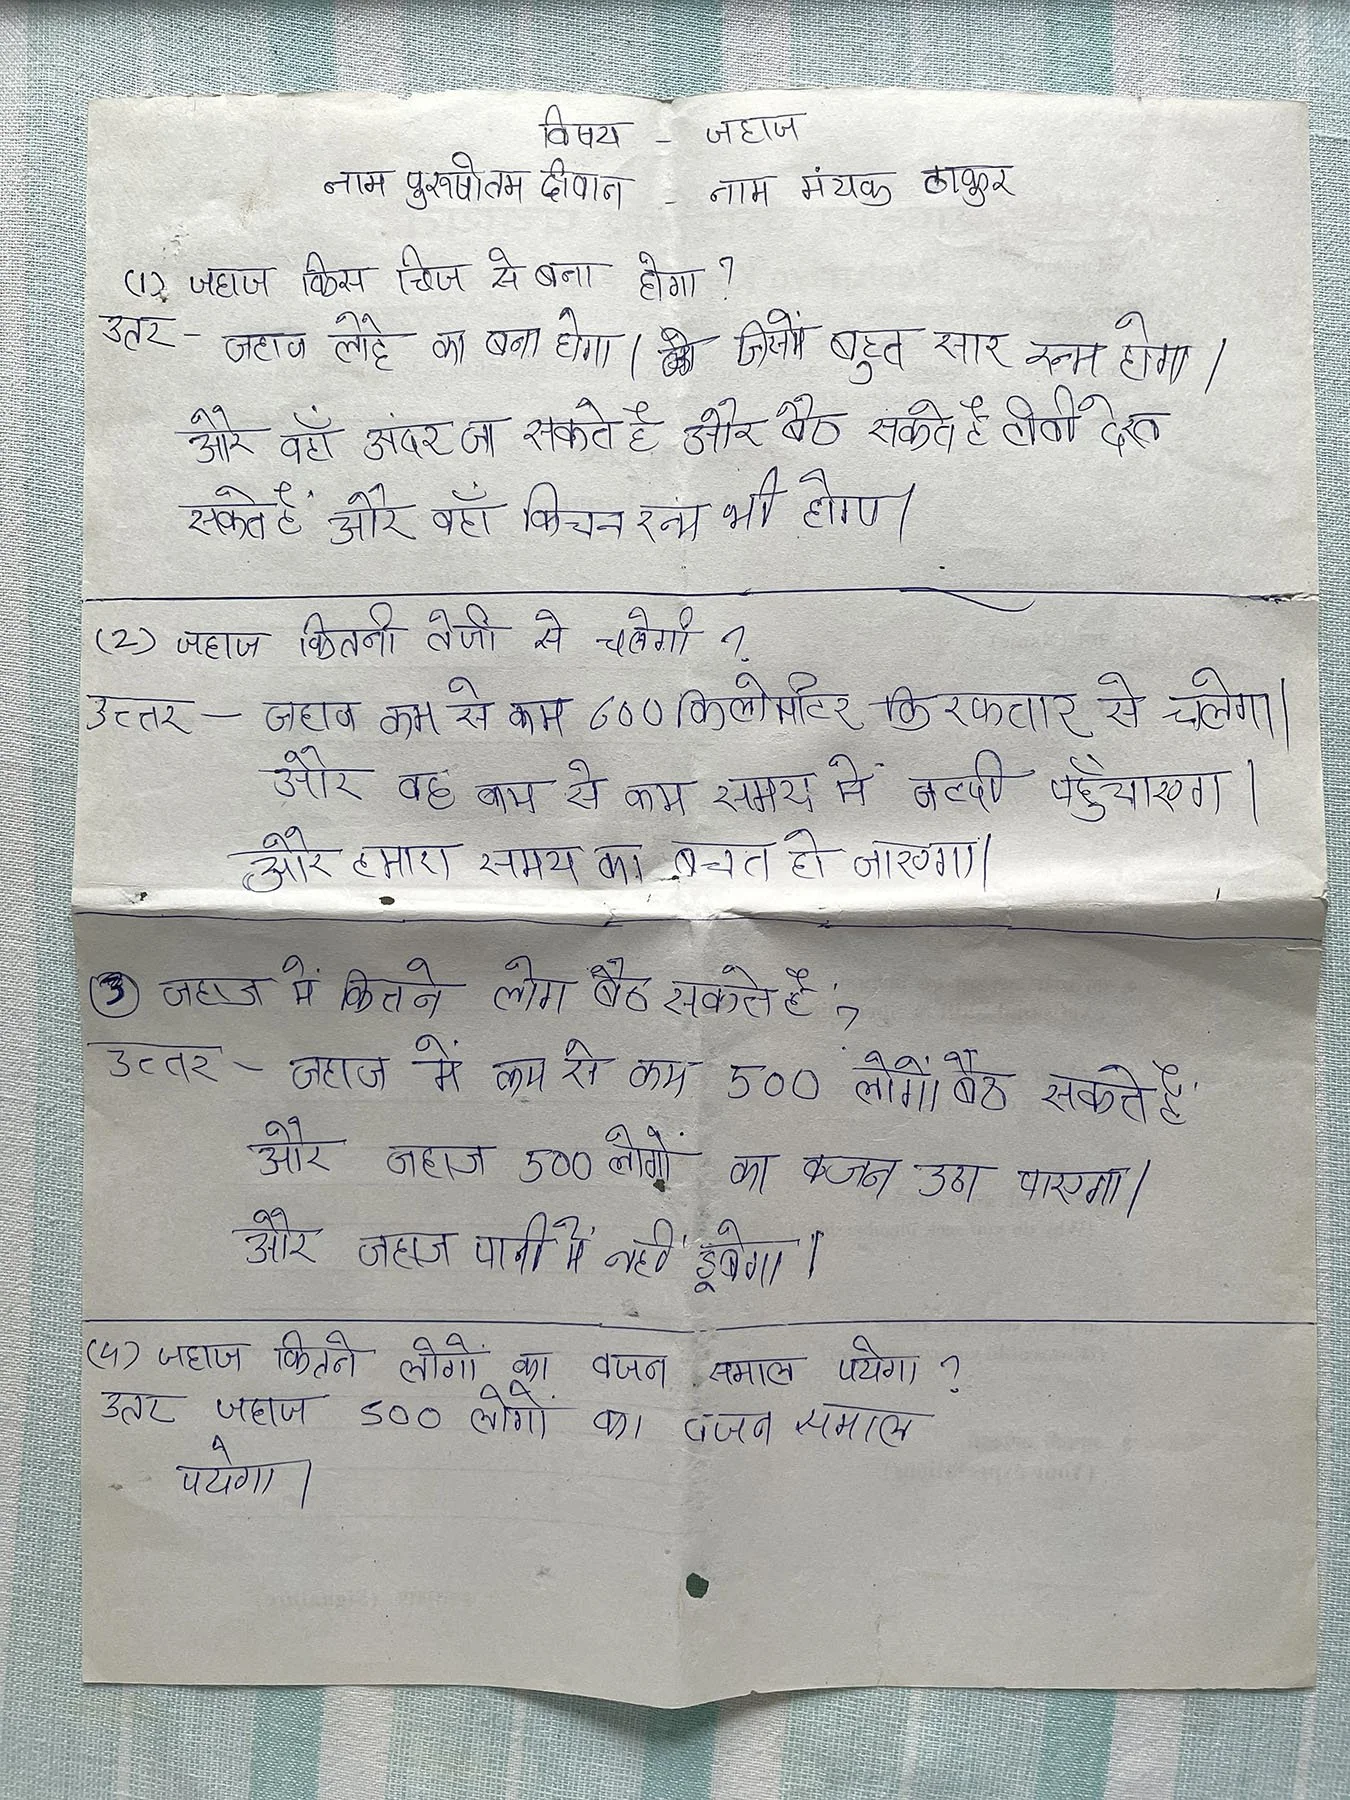 विषय - जहाज
नाम पुरूषोतम दीवान - नाम मंयक ठाकुर
(1) जहाज किस चिज से बना होगा ?
उतर - जहाज लोहे का बना होगा । जिसमें बहुत सार रूम होगा ।
और वहाँ अंदर जा सकते है और बैठ सकते है टीवी देख
सकते हैं और वहाँ किचन रूम भी होगा ।
(2) जहाज कितनी तेजी से चलेगी ?
उत्तर - जहाज कम से कम 600 किलोमीटर कि रफतार से चलेगा ।
और वह कम से कम समय में जल्दी पहुँचाएगा ।
और हमारा समय का बचत हो जाएगा ।
(3) जहाज में कितने लोग बैठ सकते हैं ?
उत्तर - जहाज में कम से कम 500 लोगों बैठ सकते हैं
और जहाज 500 लोगों का वजन उठा पाएगा ।
और जहाज पानी में नहीं डूबेगा ।
(4) जहाज कितने लोगों का वजन समाल पयेगा ?
उतर जहाज 500 लोगों का वजन समाल
पयेगा ।